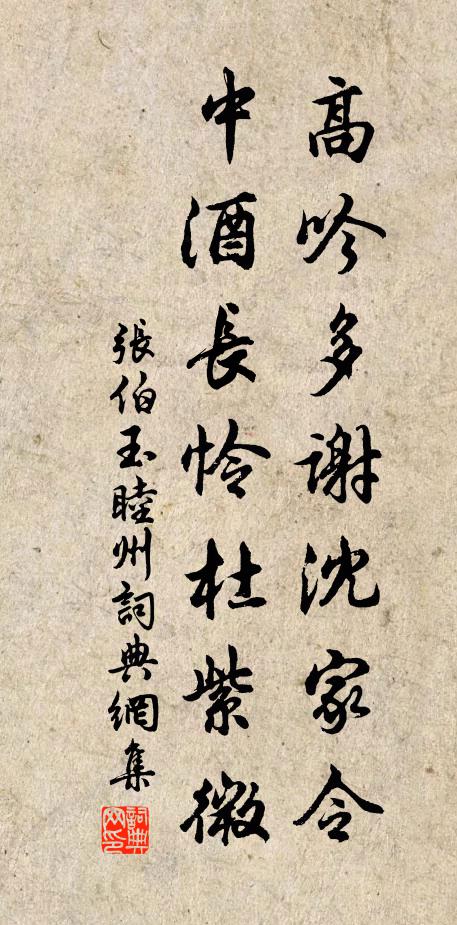 高吟多謝沈家令
中酒長怜杜紫微
張伯玉睦州詞典網集
詞典网印